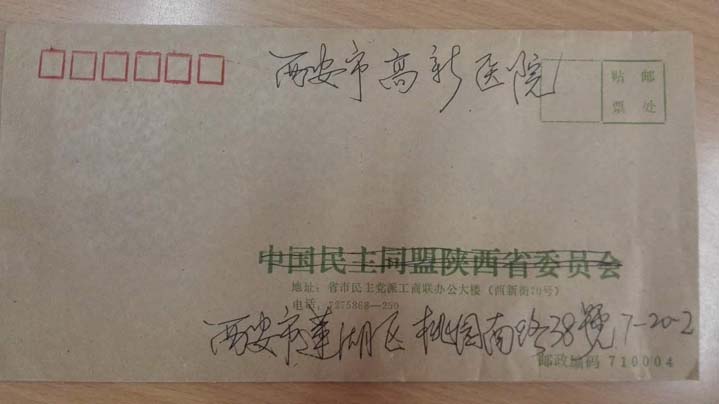 西安市高新医院
贴邮
票处
中国民主同盟陕西省委员会
地址：省市民主党派工商联办公大楼（西新街70号）
电话：7275868—250
西安市莲湖区桃园南路38號7-20-2
邮政编码 710004